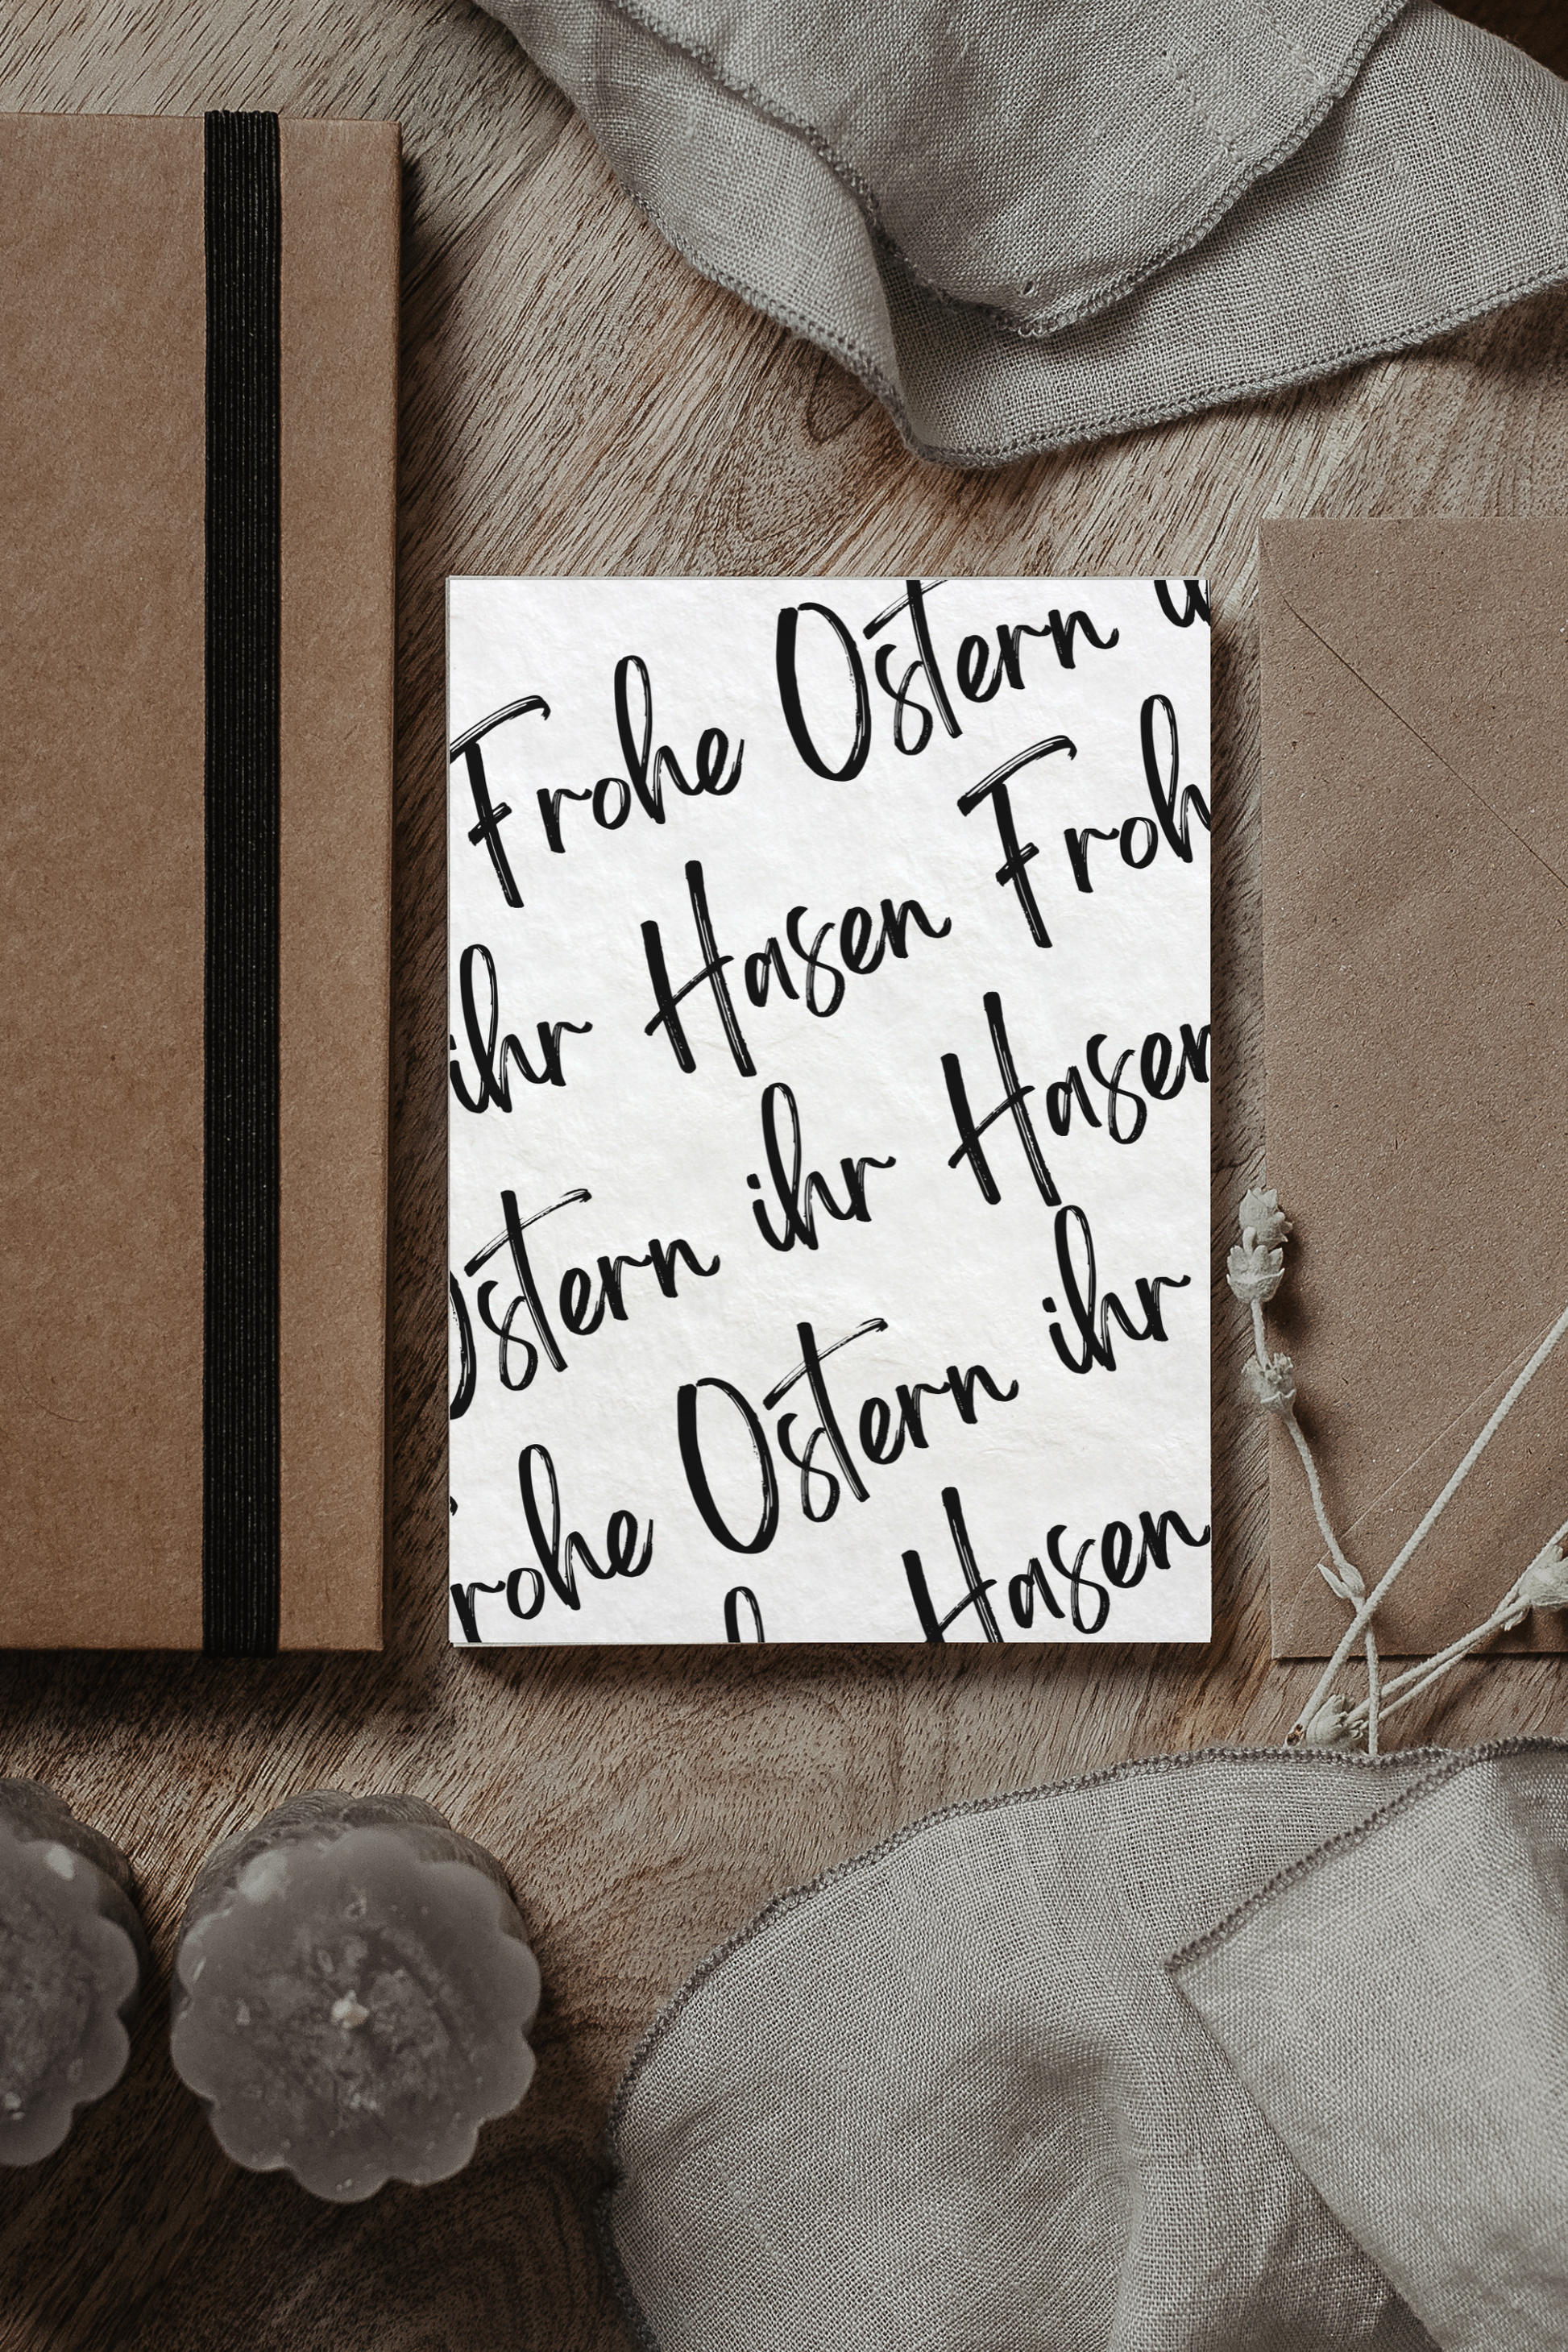 Frohe Ostern
ihr Hasen Froh
Ostern ihr Hasen
rohe Ostern ihr
Hasen